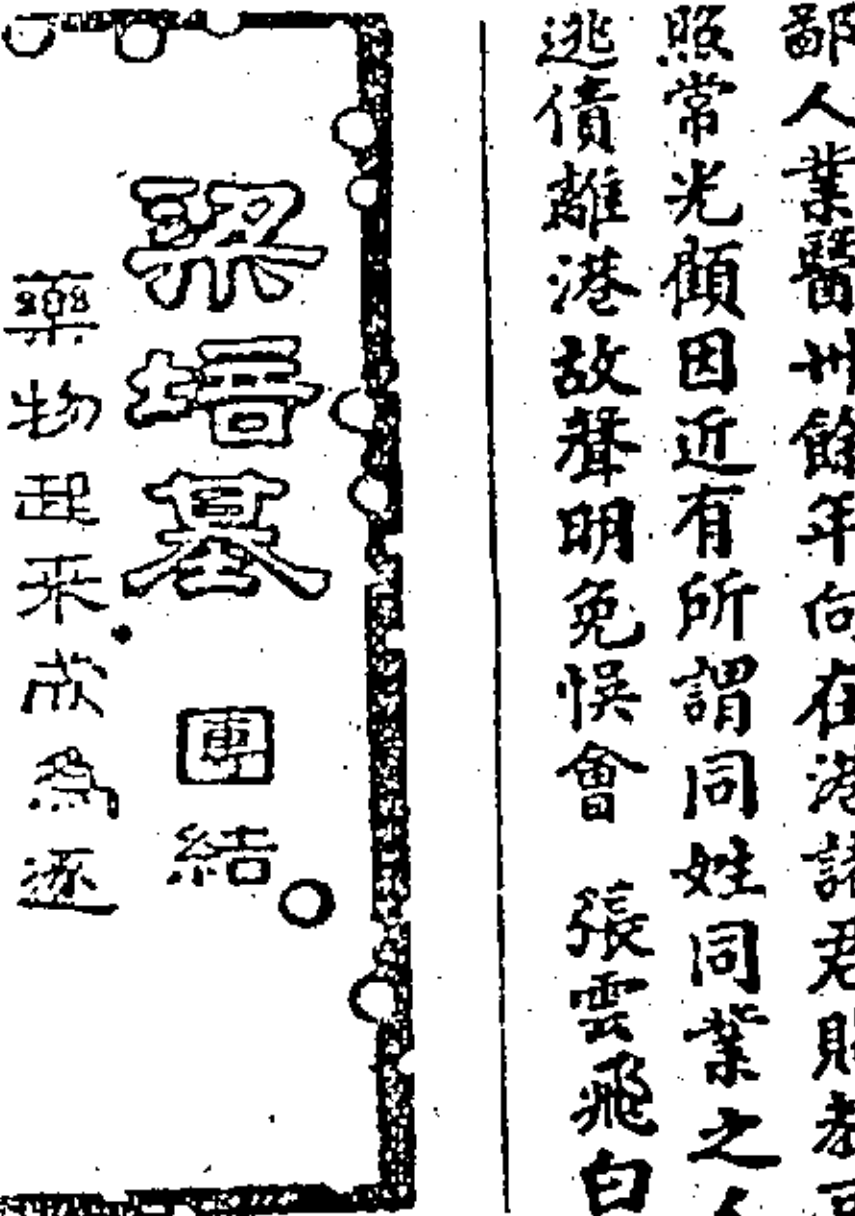 鄙人業醫卅餘年向在港諸君賜教
照常光顧因近有所謂同姓同業之人
逃債離港故聲明免悞會 張雲飛白
梁培基 團結
藥物起來成為逐